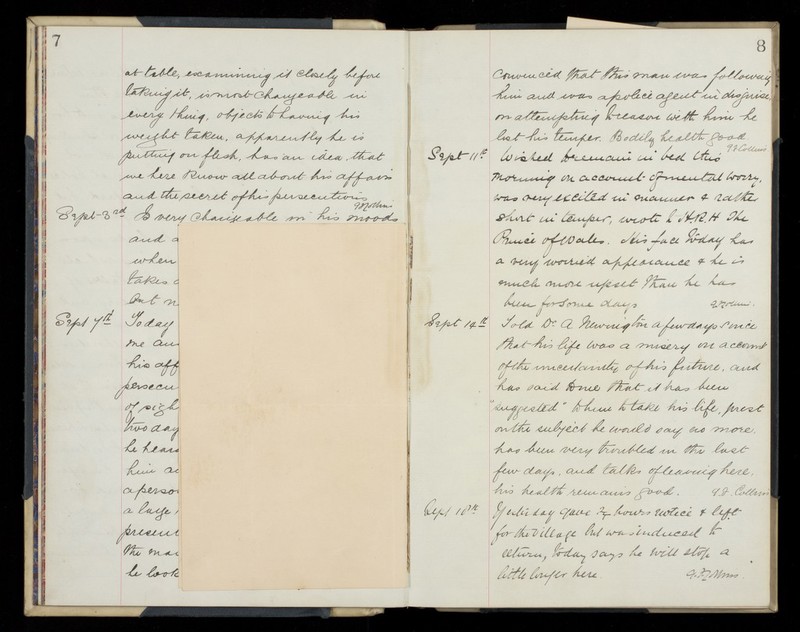 7
at table, examining it closely before
taking it, is most changeable in
every thing, objects to having his
weight taken, apparently he is
putting on flesh, has an idea that
we here know all about his affairs
and the secret of his persecutions
Sept 3rd Is very changeable in his moods
and
when
takes
but
Sept 7th Today
me
his aff
persecu
of
two day
he heard
him
a perso
a large
present
the man
he look
8
convinced that this man was following
him and was a police agent in disguise,
on attempting to reason with him he
lost his temper. Bodily health good
Sept 11th Wished to remain in bed this
morning on account of mental worry,
was very excited in manner & rather
short in temper, wrote to H.R.H The
Prince of Wales. His face today has
a very worried appearance & he is
much more upset than he has
been for some days
Sept 14th Told Dr. A Newington a few days since
that his life was a misery on account
of the uncertainty of his future, and
has said to me that it has been
"suggested" to him to take his life, prest
on the subject he would say no more.
has been very troubled in the last
few days, and talks of leaving here.
his health remains good. Collins
Sept Yesterday gave 24 hours notice & left
for the village but was induced to
return, today says he will stop a
little longer here